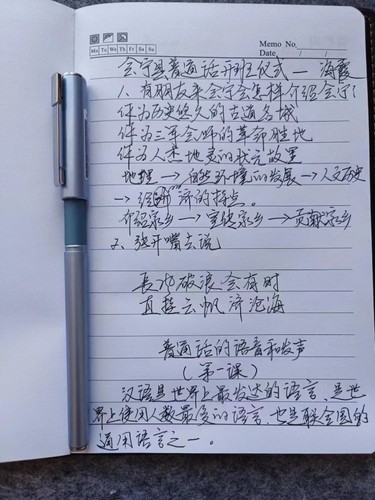 Memo No.
Mo Tu We Th Fr Sa Su
Date / /
会宁县普通话开班仪式 — 海霞
1、有朋友来会宁会怎样介绍会宁?
作为历史悠久的古道名城
作为三军会师的革命胜地
作为人杰地灵的状元故里
地理 → 自然环境的发展 → 人文历史
→ 经济的特点。
介绍家乡 → 宣传家乡 → 贡献家乡
2、张开嘴去说
長风破浪会有时
直挂云帆济沧海
普通话的语音和发声
(第一课)
汉语是世界上最发达的语言、是世
界上使用人数最多的语言、也是联合国的
通用语言之一。